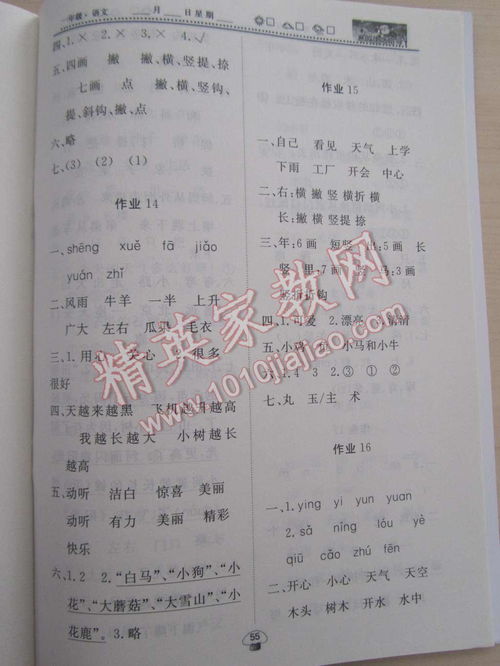 一年级·语文 月 日星期
四、1.× 2.× 3.× 4.✓
五、四画 撇 撇、横、竖提、捺
七画 点 撇、横、竖钩、
提、斜钩、撇、点
六、略
七、(3) (2) (1)
作业 14
一、shēng xuě fā jiǎo
yuán zhǐ
二、风雨 牛羊 一半 上升
广大 左右 瓜果 毛衣
三、1.用心 关心 很多
很好
四、天越来越黑 飞机越升越高
我越长越大 小树越长
越高
五、动听 洁白 惊喜 美丽
动听 有力 美丽 精彩
快乐
六、1.2 2.“白马”、“小狗”、“小
花”、“大蘑菇”、“大雪山”、“小
花鹿” 3.略
作业 15
一、自己 看见 天气 上学
下雨 工厂 开会 中心
二、右:横撇竖横折横
长:撇横竖提捺
三、年:6画 短竖 出:5画 长
竖 里:7画 竖 马:3画
竖折折钩
四、1.可爱 2.漂亮 清清
五、小鸡 小马和小牛
六、1.4 3 2.③ ① ②
七、丸 玉/主 术
作业 16
一、1.ying yi yun yuan
2.sǎ níng lóu yè
qiū cǎo zhú fēn
二、开心 小心 天气 天空
木头 树木 开水 水中
55
精英家教网
www.1010jiajiao.com